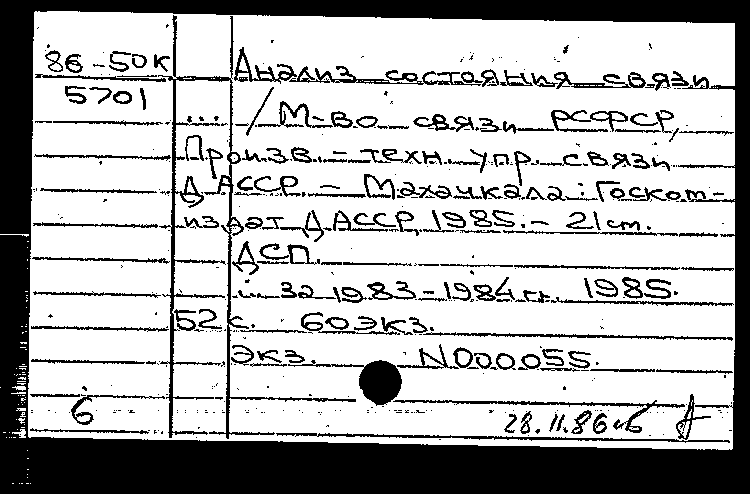 86-50К Анализ состояния связи
5701 ... / М-во связи РСФСР,
Произв.-техн. упр. связи
ДАССР. - Махачкала: Госкомиздат ДАССР, 1985. - 21 см.
ДСП.
... за 1983-1984 гг. 1985.
52 с. 60 экз.
Экз. N000055.
6 28.11.86